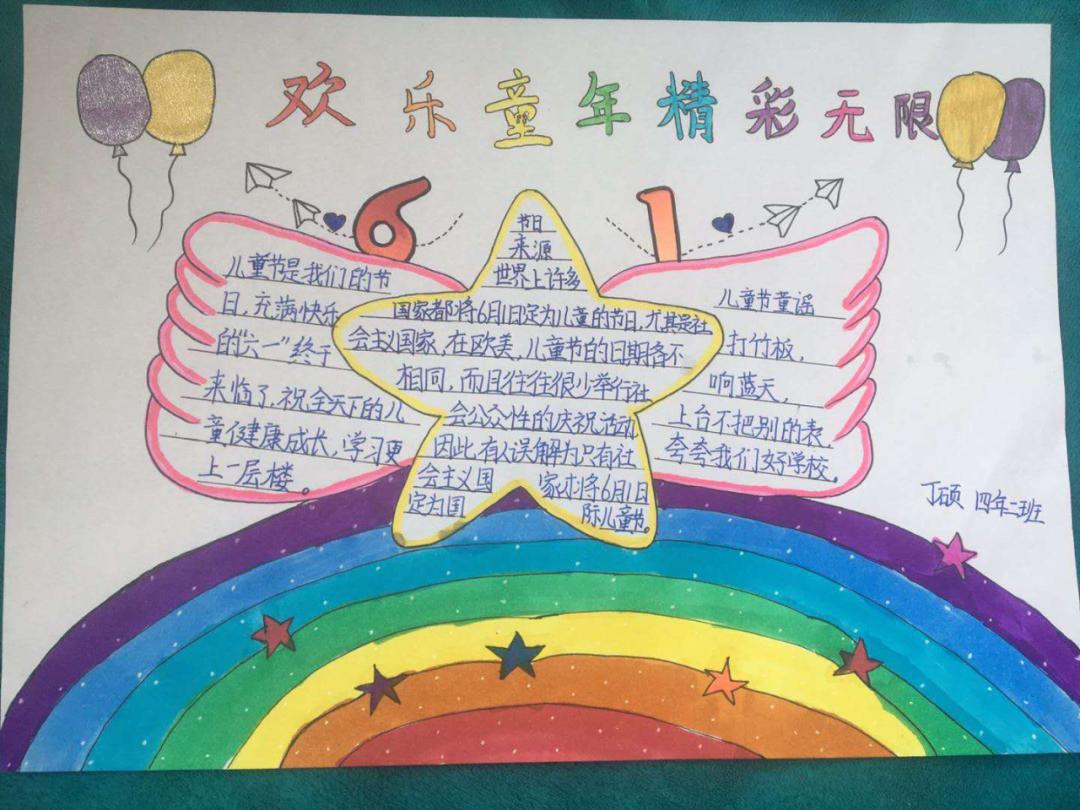 欢乐童年精彩无限
6 1
儿童节是我们的节
日,充满快乐
的“六一”终于
来临了,祝全天下的儿
童健康成长,学习更
上一层楼。
节日
来源
世界上许多
国家都将6月1日定为儿童的节日,尤其是社
会主义国家,在欧美,儿童节的日期各不
相同,而且往往很少举行社
会公众性的庆祝活动,
因此,有人误解为只有社
会主义国 家才将6月1日
定为国 际儿童节。
儿童节童谣
打竹板,
响蓝天,
上台不把别的表,
夸夸我们好学校。
丁硕 四年二班